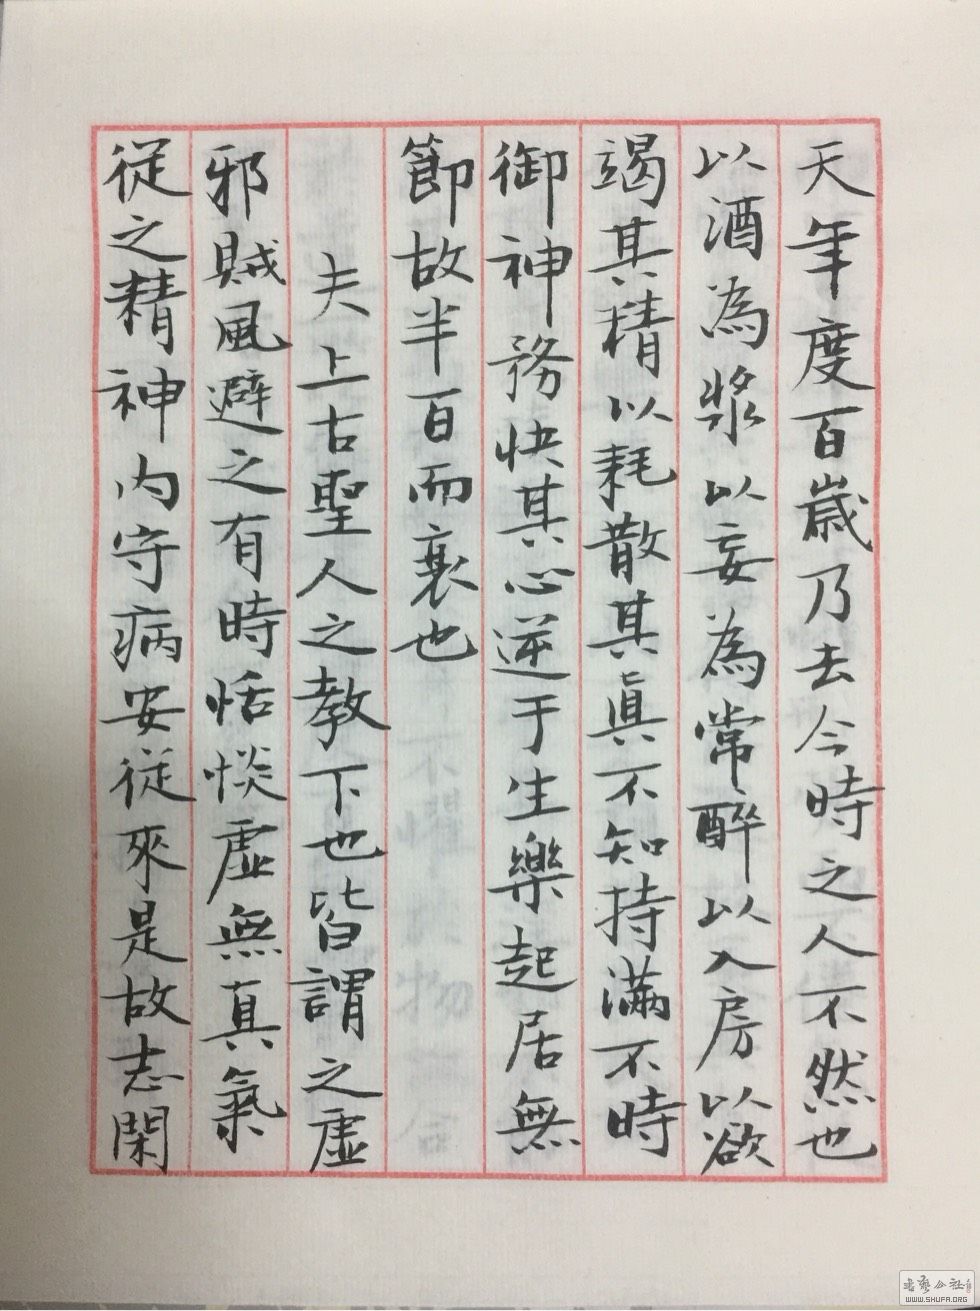 天年度百歲乃去今時之人不然也
以酒為漿以妄為常醉以入房以欲
竭其精以耗散其真不知持滿不時
御神務快其心逆于生樂起居無
節故半百而衰也
夫上古聖人之教下也皆謂之虛
邪賊風避之有時恬惔虛無真氣
從之精神內守病安從來是故志閑
WWW.SHUFA.ORG